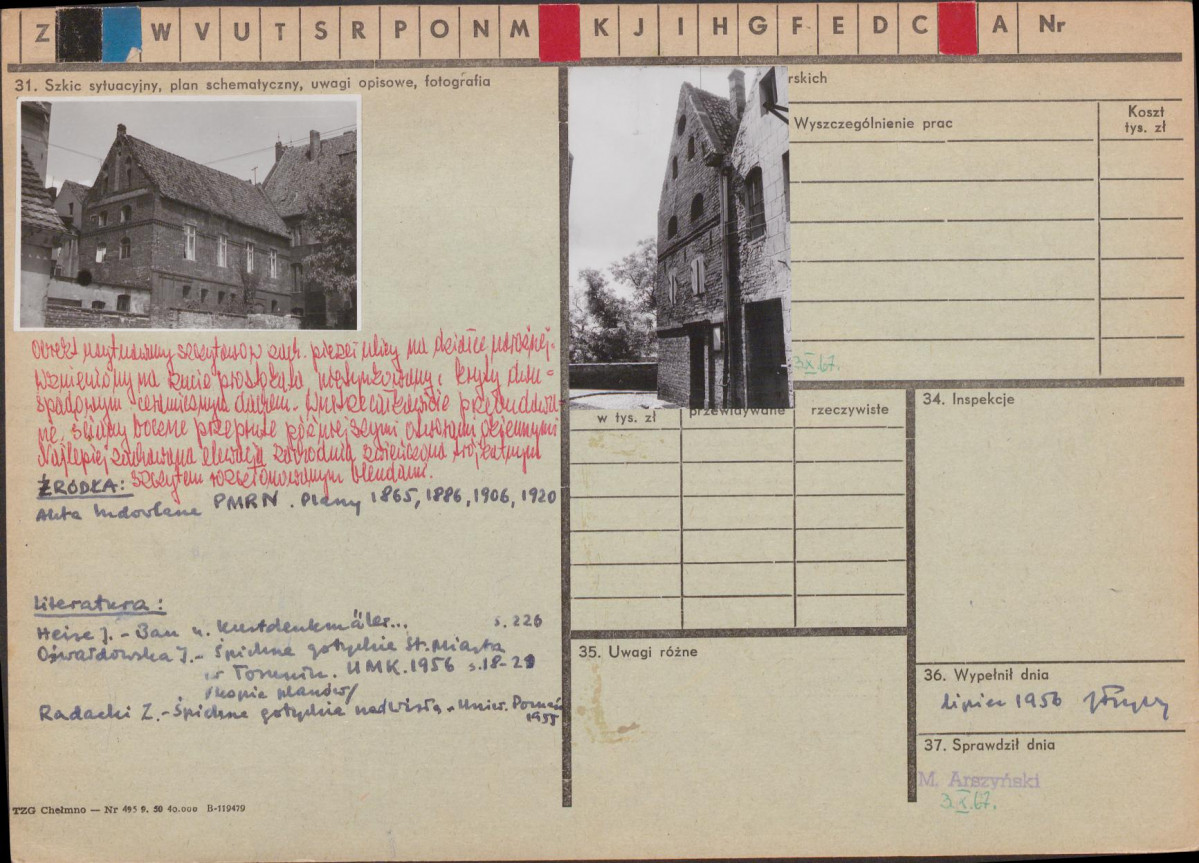 Z W V U T S R P O N M K J I H G F E D C A Nr
31. Szkic sytuacyjny, plan schematyczny, uwagi opisowe, fotografia
Obiekt usytuowany szczytowo w zach. pierzei ulicy na działce narożnej.
Wzniesiony na rzucie prostokąta, nieotynkowany, kryty dwu-
spadowym ceramicznym dachem. Wnętrze całkowicie przebudowa-
ne. Ściany boczne przeprute późniejszymi otworami okiennymi
Najlepiej zachowana elewacja zachodnia zwieńczona trójkątnym
szczytem rozczłonkowanym blendami.
ŹRÓDŁA:
Akta budowlane PMRN. Plany 1865, 1886, 1906, 1920
Literatura:
Heise J. - Bau u. Kunstdenkmäler... s. 226
Oświardowska J. - Śpichrze gotyckie St. Miasta
w Toruniu. UMK. 1956 s. 18-29
/kopie planów/
Radacki Z. - Śpichrze gotyckie nad Wisłą - Uniw. Poznań
1955
TZG Chełmno — Nr 495 9. 50 40.000 B-119479
rskich
Wyszczególnienie prac
Koszt
tys. zł
3.X.67.
w tys. zł
przewidywane
rzeczywiste
34. Inspekcje
35. Uwagi różne
36. Wypełnił dnia
lipiec 1956
37. Sprawdził dnia
M. Arszyński
3.X.67.